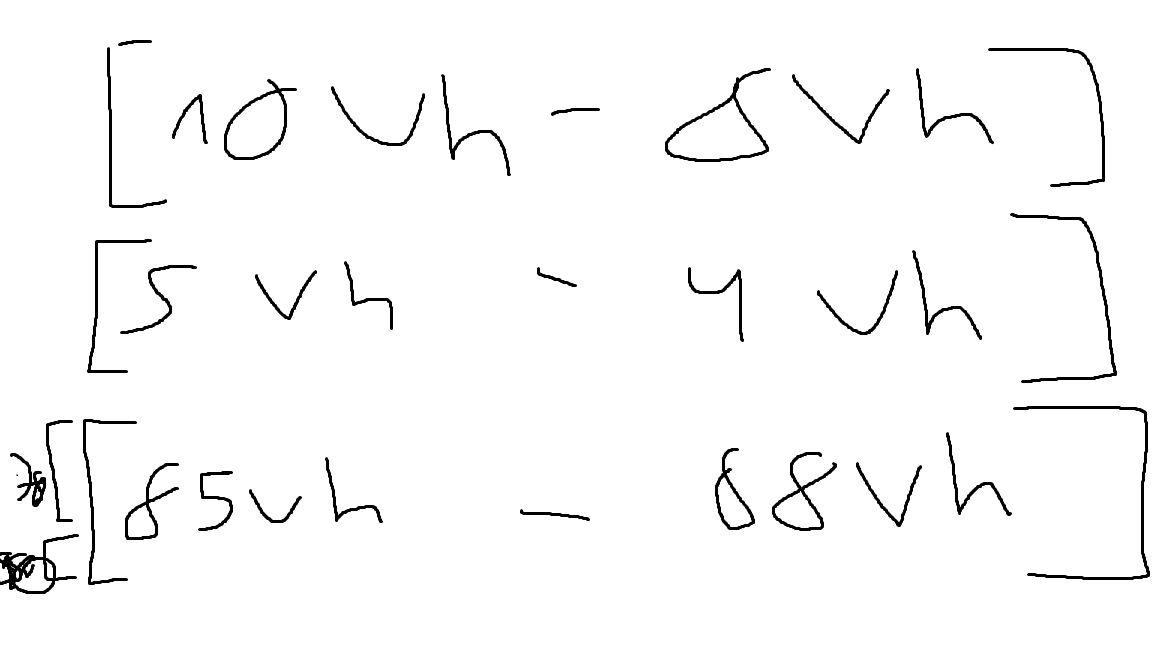 [10vh - 8vh]
[5vh - 4vh]
[85vh - 88vh]